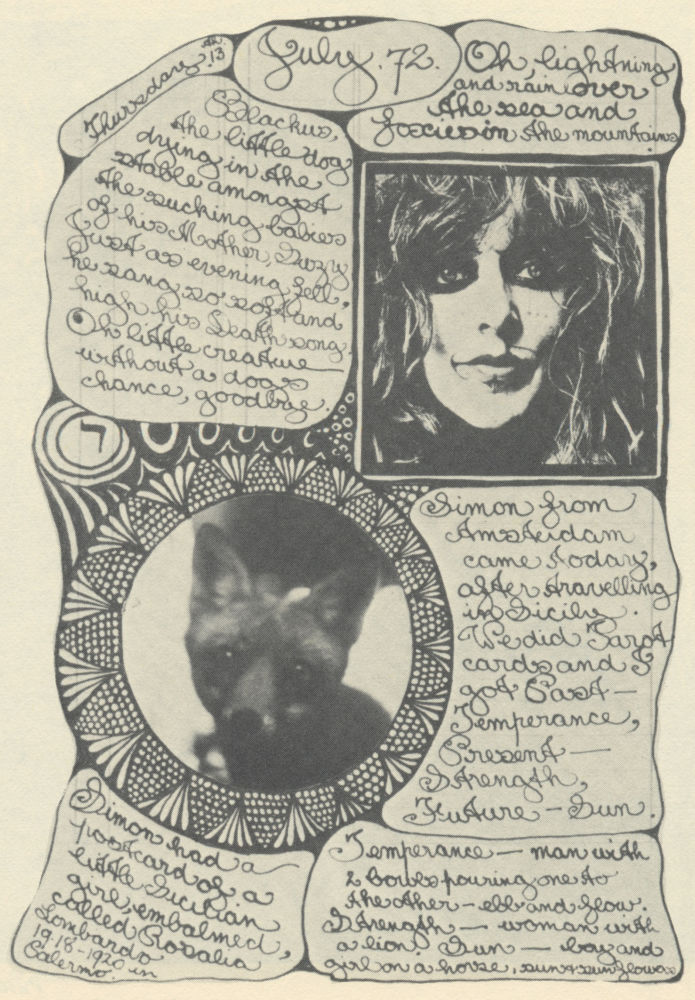 Thursday 13th
July. 72.
Oh, lightning
and rain over
the sea and
foxies in the mountains
Blackus,
the little dog
dying in the
stable amongst
the sucking babies
of his Mother, Suzzy
Just as evening fell,
he sang so soft and
high his Death song
Oh little creature
without a dog's
chance, goodbye.
7
Simon from
Amsterdam
came today,
after travelling
in Sicily.
We did Tarot
cards and I
got Past —
Temperance,
Present —
Strength,
Future — Sun.
Simon had a
postcard of a
little Sicilian
girl, embalmed,
called Rosalia
Lombardo
1918-1920 in
Palermo.
Temperance — man with
2 bowls pouring one to
the other — ebb and flow.
Strength — woman with
a lion. Sun — boy and
girl on a horse, sun & sunflowers